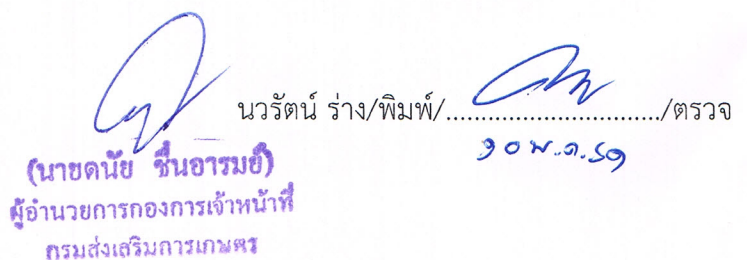 นวรัตน์ ร่าง/พิมพ์/............................../ตรวจ
(นายดนัย ชื่นอารมย์)
ผู้อำนวยการกองการเจ้าหน้าที่
กรมส่งเสริมการเกษตร